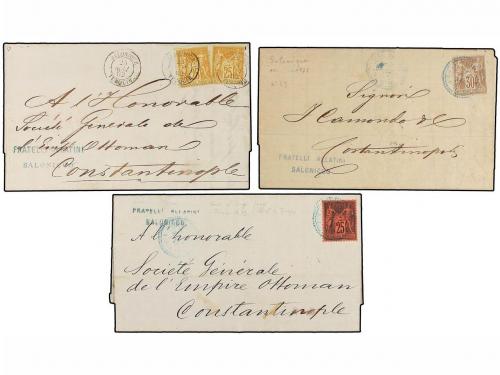 SALONIQUE
25
A l'Honorable
Société Generale de
d'Emp Ottoman
FRATELLI ALLATINI
SALONICCO
Constantinople
Salonique
30
Signori
I Camondo & C
Costantinopoli
FRATELLI ALLATINI
SALONICCO
FRATELLI ALLATINI
SALONICCO
25
A l'honorable
Société Générale
de l'Empire Ottoman
Constantinople